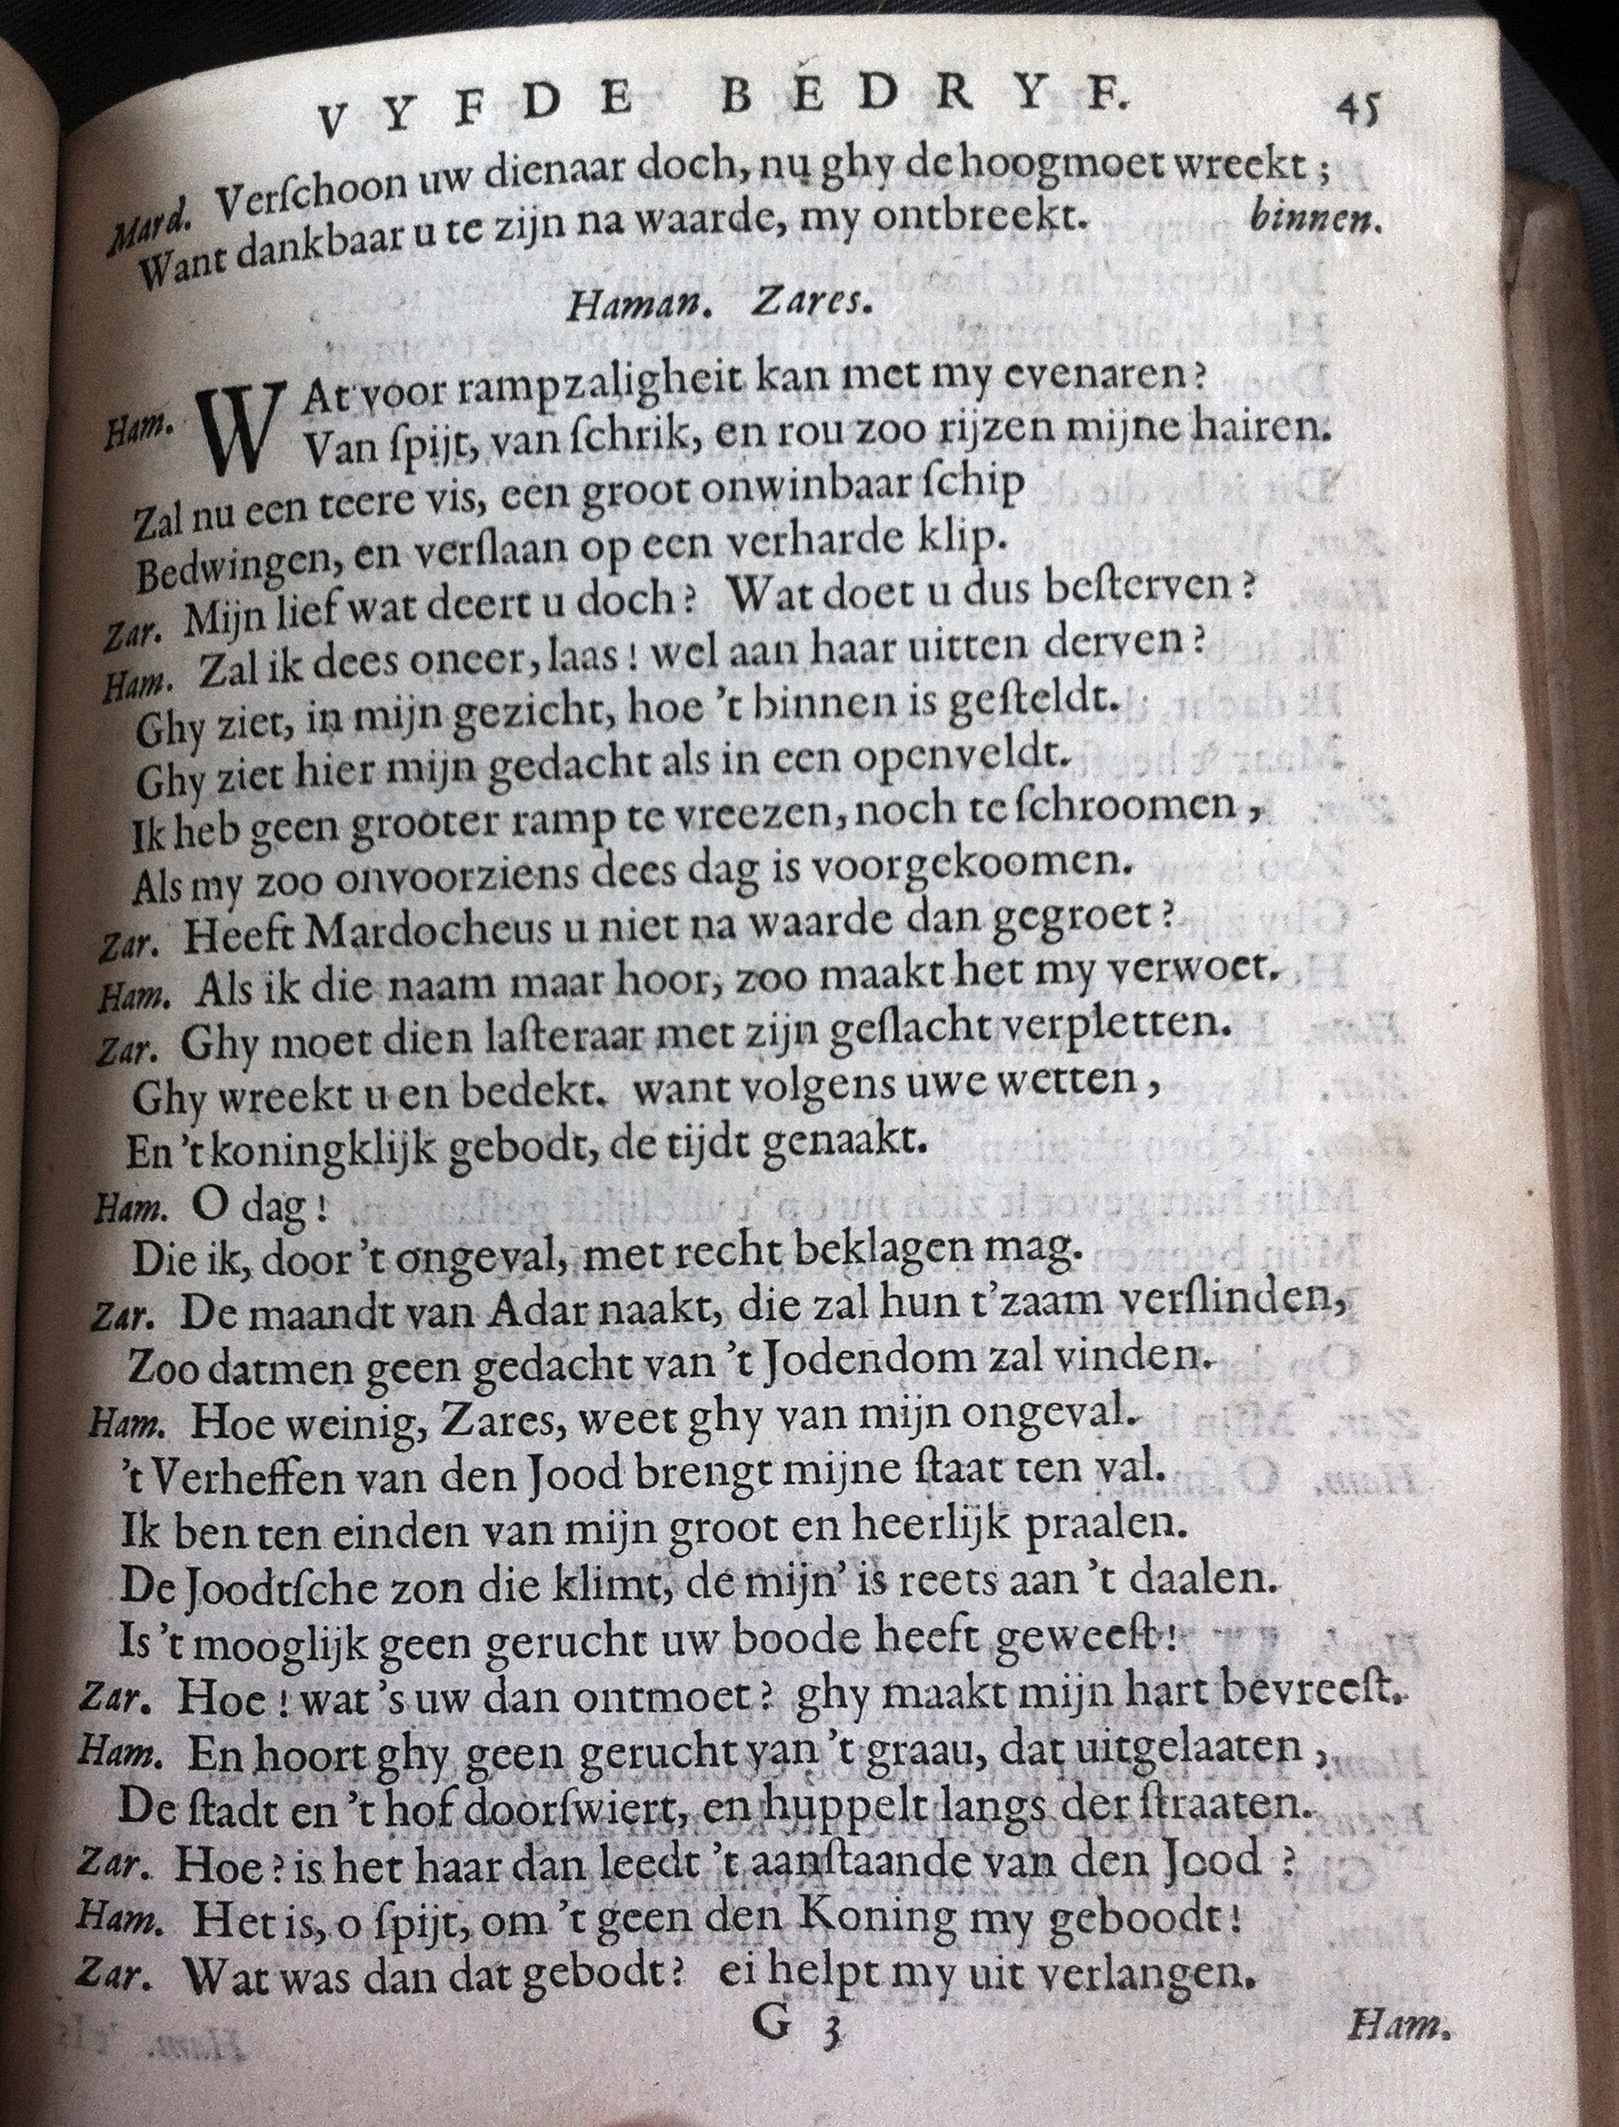 VYFDE BEDRYF. 45
Mard. Verſchoon uw dienaar doch, nu ghy de hoogmoet wreekt;
Want dankbaar u te zijn na waarde, my ontbreekt. binnen.
Haman. Zares.
Ham. WAt voor rampzaligheit kan met my evenaren?
Van ſpijt, van ſchrik, en rou zoo rijzen mijne hairen.
Zal nu een teere vis, een groot onwinbaar ſchip
Bedwingen, en verſlaan op een verharde klip.
Zar. Mijn lief wat deert u doch? Wat doet u dus beſterven?
Ham. Zal ik dees oneer, laas! wel aan haar uitten derven?
Ghy ziet, in mijn gezicht, hoe 't binnen is geſteldt.
Ghy ziet hier mijn gedacht als in een openveldt.
Ik heb geen grooter ramp te vreezen, noch te ſchroomen,
Als my zoo onvoorziens dees dag is voorgekoomen.
Zar. Heeft Mardocheus u niet na waarde dan gegroet?
Ham. Als ik die naam maar hoor, zoo maakt het my verwoet.
Zar. Ghy moet dien laſteraar met zijn geſlacht verpletten.
Ghy wreekt u en bedekt. want volgens uwe wetten,
En 't koningklijk gebodt, de tijdt genaakt.
Ham. O dag!
Die ik, door 't ongeval, met recht beklagen mag.
Zar. De maandt van Adar naakt, die zal hun t'zaam verſlinden,
Zoo datmen geen gedacht van 't Jodendom zal vinden.
Ham. Hoe weinig, Zares, weet ghy van mijn ongeval.
't Verheffen van den Jood brengt mijne ſtaat ten val.
Ik ben ten einden van mijn groot en heerlijk praalen.
De Joodtſche zon die klimt, de mijn' is reets aan 't daalen.
Is 't mooglijk geen gerucht uw boode heeft geweeſt!
Zar. Hoe! wat 's uw dan ontmoet? ghy maakt mijn hart bevreeſt.
Ham. En hoort ghy geen gerucht van 't graau, dat uitgelaaten,
De ſtadt en 't hof doorſwiert, en huppelt langs der ſtraaten.
Zar. Hoe? is het haar dan leedt 't aanſtaande van den Jood?
Ham. Het is, o ſpijt, om 't geen den Koning my geboodt!
Zar. Wat was dan dat gebodt? ei helpt my uit verlangen.
G 3 Ham.